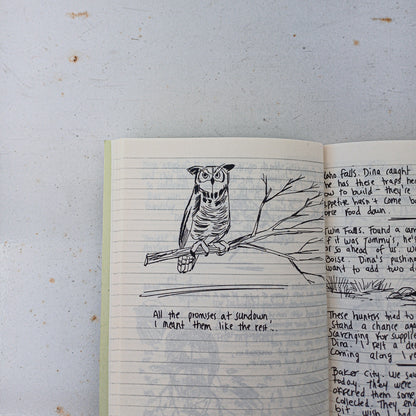 All the promises at sundown,
I meant them like the rest...
Idaho Falls. Dina caught
he has these traps he
ow to build - they're
appetite hasn't come b
orce food down.
Twin Falls. Found a
if it was Tommy's, he's
or so ahead of us. W
Boise. Dina's pushing
want to add two
These hunters tried to
stand a chance
Scavenging for supplie
Dina. I felt a
coming along I
Baker City. We
today. They were
offered them som
collected. They
bit. I wish I